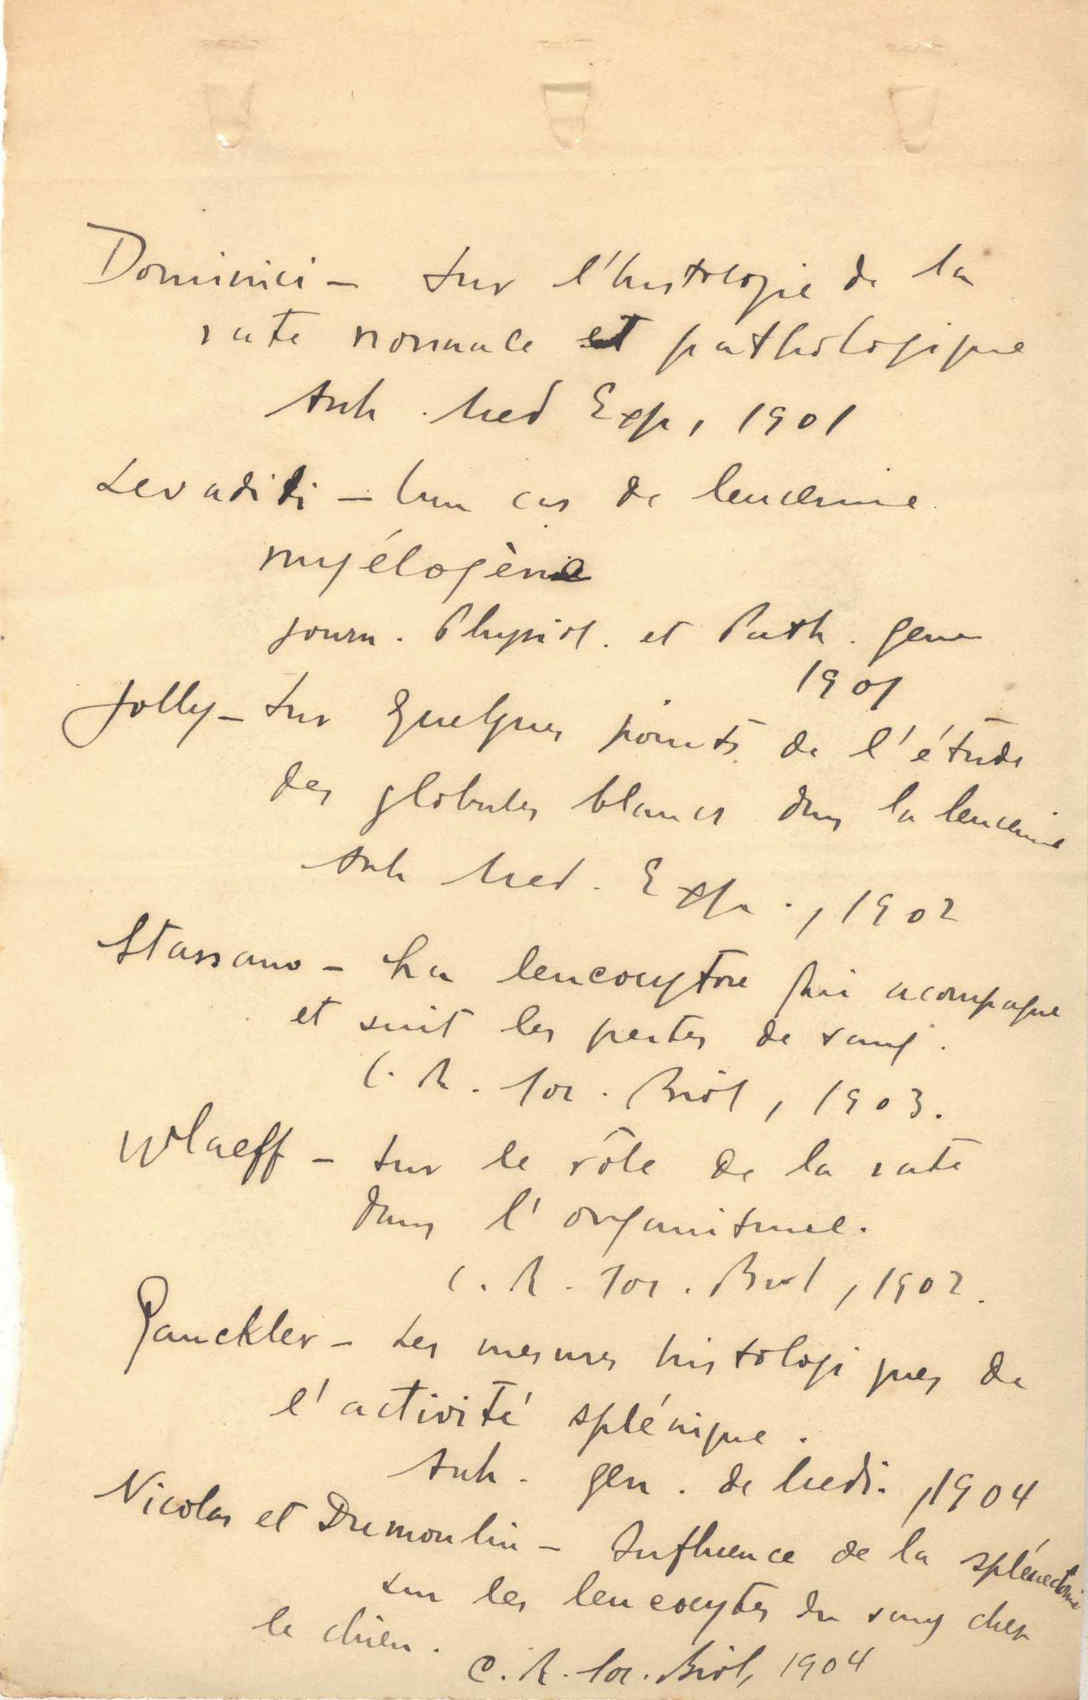 Dominici – Sur l'histologie de la
rate normale et pathologique
Arch. Med Exp, 1901
Levaditi – Un cas de leucemie
myélogène
Journ. Physiol. et Path. gen
1901
Jolly – Sur quelques points de l'étude
des globules blancs dans la leucemie
Arch Med. Exp., 1902
Stassano – La leucocytose qui acompagne
et suit les pertes de sang.
C. R. Soc. Biol, 1903.
Wlaeff – Sur le rôle de la rate
dans l'organisme.
C. R. Soc. Biol, 1902.
Gauckler – Les mesures histologiques de
l'activité splénique.
Arch. gen. de Medi., 1904
Nicolas et Dumoulin – Influence de la splénectomie
sur les leucocytes du sang chez
le chien.
C. R. Soc. Biol, 1904